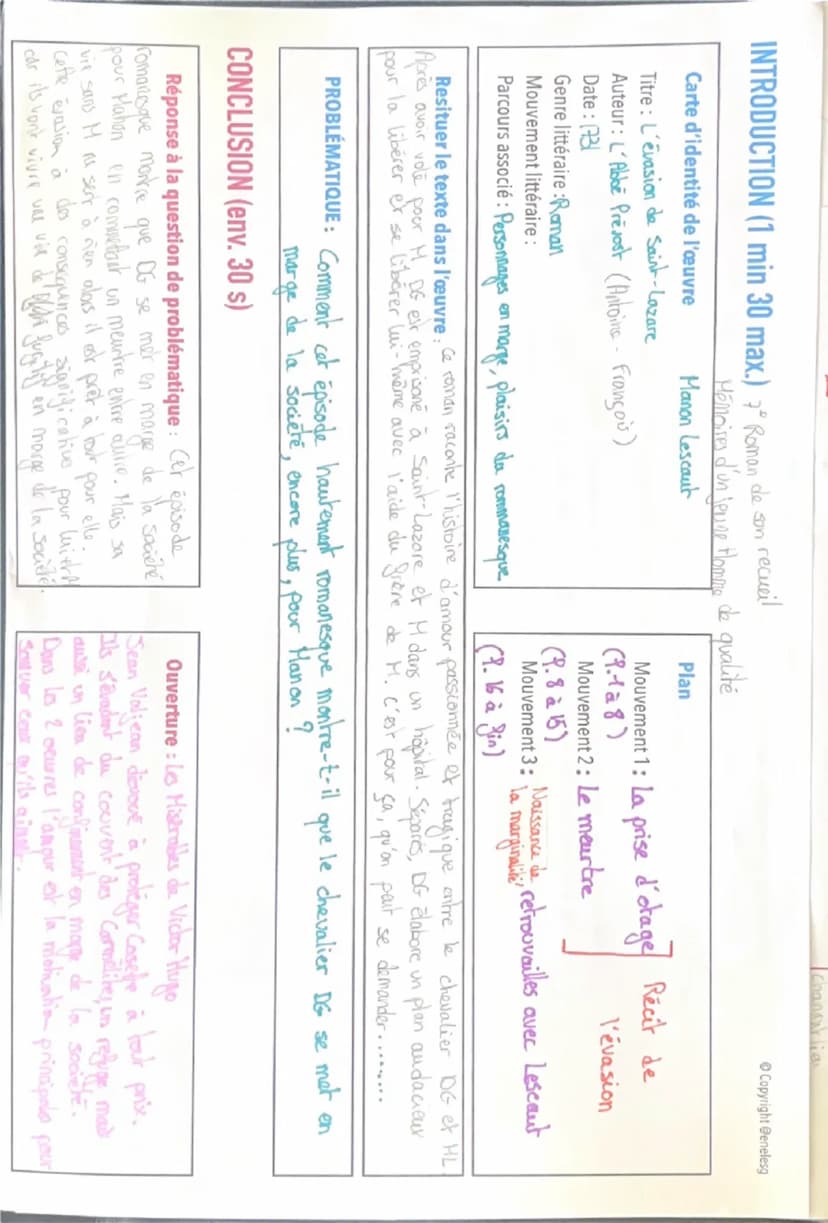 INTRODUCTION (1 min 30 max.) 7° Roman de son recueil
Mémoires d'un jeune Homme de qualité
Carte d'identité de l'œuvre Manon Lescaut
Titre : L'évasion de Saint-Lazare
Auteur : L'Abbé Prévost (Antoine-François)
Date : 1731
Genre littéraire : Roman
Mouvement littéraire :
Parcours associé : Personnages en marge, plaisirs du rommanesque
Plan
Mouvement 1 : La prise d'otage
(l.1 à 8)
Mouvement 2 : Le meurtre
(l. 8 à 15)
Récit de
l'évasion
Mouvement 3 : Naissance de la marginalité, retrouvailles avec Lescaut
(l. 16 à fin)
© Copyright @enelesg
Resituer le texte dans l'œuvre : Ce roman raconte l'histoire d'amour passionnée et tragique entre le chevalier DG et ML.
Après avoir volé pour M, DG est emprisonné à Saint-Lazare et M dans un hôpital. Séparés, DG élabore un plan audacieux
pour la libérer et se libérer lui-même avec l'aide du frère de M. C'est pour ça, qu'on peut se demander........
PROBLÉMATIQUE : Comment cet épisode hautement romanesque montre-t-il que le chevalier DG se met en
marge de la société, encore plus, pour Manon ?
CONCLUSION (env. 30 s)
Réponse à la question de problématique : Cet épisode
romanesque montre que DG se met en marge de la société
pour Manon en commettant un meurtre entre autre. Mais sa
vie sans M ne sert à rien alors il est prêt à tout pour elle.
Cette évasion à des conséquences significative pour lui + M
car ils vont vivre une vie de fugitif en marge de la société.
Ouverture : Les Misérables de Victor Hugo
Jean Valjean dévoué à protéger Cosette à tout prix.
Ils s'évadent du couvent des Carmélites, un refuge mais
aussi un lieu de confinement en marge de la société.
Dans les 2 œuvres l'amour est la motivation principales pour
sauver ceux qu'ils aiment.